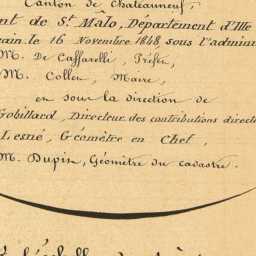 Canton de Chateauneuf,
nt de St. Malo, Département d'Ille
ain le 16 Novembre 1848, sous l'admin
M. De Caffarelli, Préfet,
M. Collen, Maire,
en sous la direction de
Gobillard, Directeur des contributions direct
Lesné, Géomètre en Chef,
M. Dupin, Géomètre du cadastre.